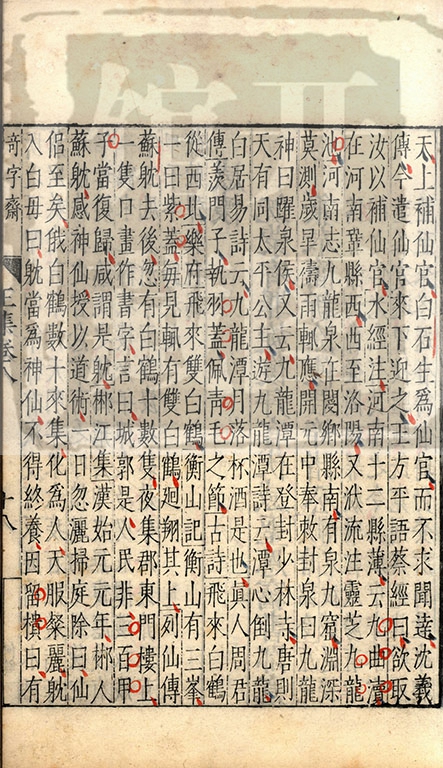 天上補仙官白石生爲仙官而不求聞達沈羲
傳今遣仙官來下迎之王方平語蔡經曰欲取
汝以補仙官水經注河南十二縣薄云九曲瀆
在河南鞏縣西西至洛陽又洑流注靈芝九龍
池河南志九龍泉在閿鄉縣南有泉九竇淵深
莫測歲旱禱雨輒應開元中奉敕封泉曰九龍
神曰躍泉侯又云九龍潭在登封少林寺唐則
天有同太平公主遊九龍潭詩云潭心倒九龍
白居易詩云九龍潭月落杯酒是也真人周君
傳羨門子執羽蓋佩青毛之節古詩飛來白鶴
從西北樂府飛來雙白鶴衡山記衡山有三峯
一曰紫蓋毎見輒有雙白鶴廻翔其上列仙傳
蘇躭去後忽有白鶴十數隻夜集郡東門樓上
一隻口畫作書字言曰城郭是人民非三百甲
子當復歸咸謂是躭郴江集漢始元元年郴人
蘇躭感神仙授以道術一日忽灑掃庭除曰仙
侣至矣俄白鶴數十來集化爲人天服粲麗躭
入白毋曰躭當爲神仙不得終養因留樻曰有
奇字齋
王集卷八
十八